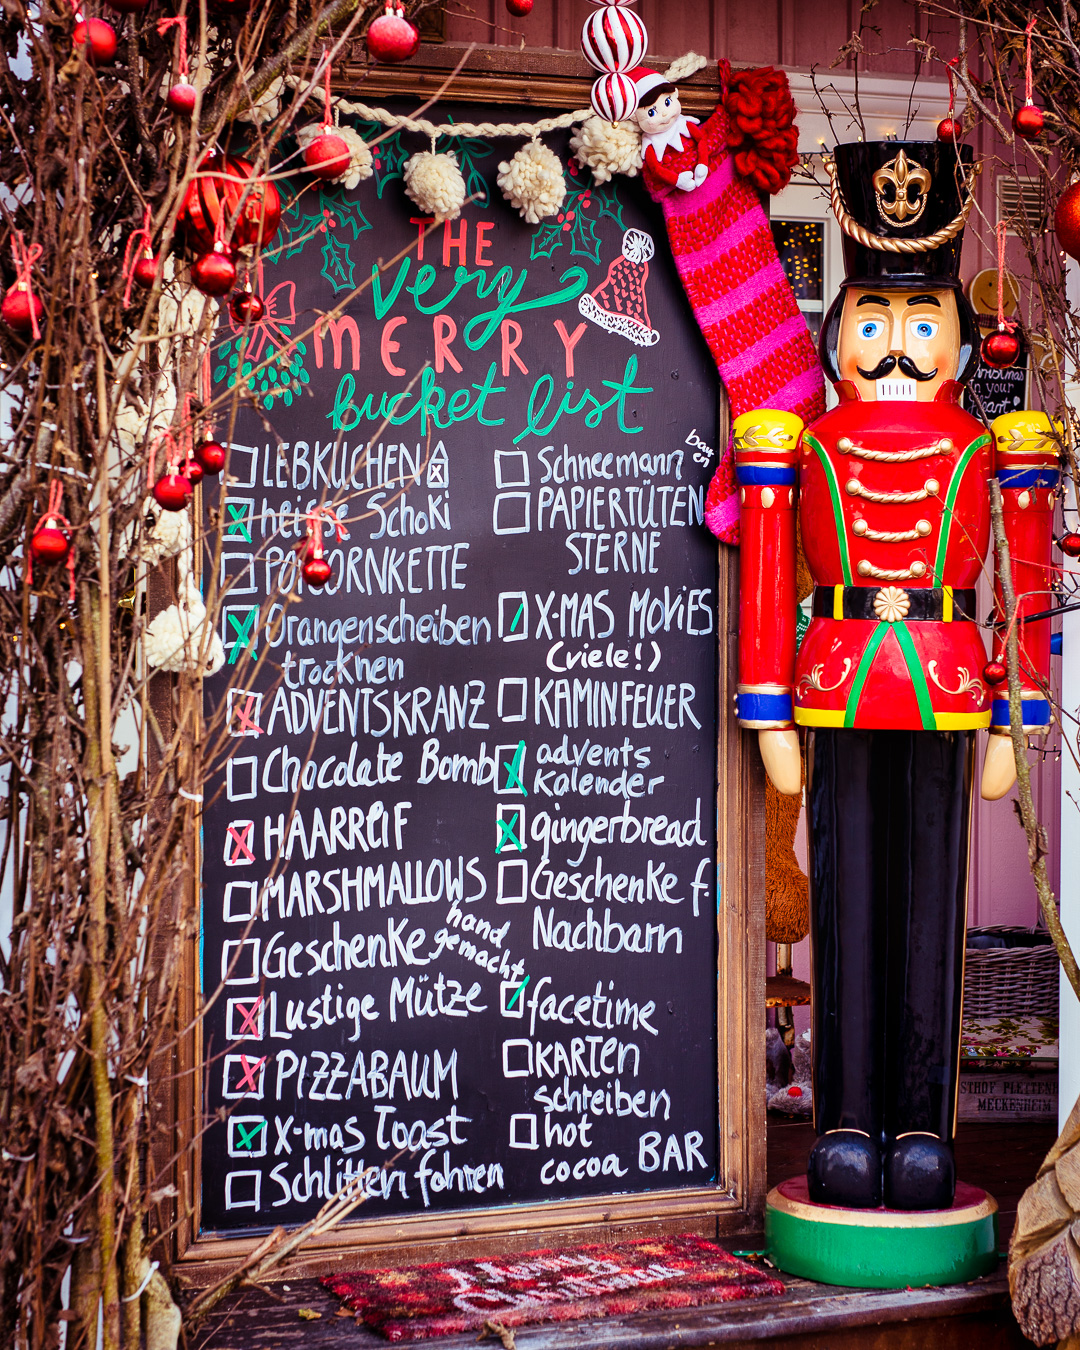 THE
very
MERRY
bucket list
LEBKUCHEN
heisse Schoki
POPCORNKETTE
Orangenscheiben
trocknen
ADVENTSKRANZ
Chocolate Bomb
HAARREIF
MARSHMALLOWS
Geschenke hand
gemacht
Lustige Mütze
PIZZABAUM
X-mas Toast
Schlitten fahren
Schneemann bau
en
PAPIERTÜTEN
STERNE
X-MAS MOViES
(viele!)
KAMINFEUER
advents
Kalender
gingerbread
Geschenke f.
Nachbarn
facetime
KARTEn
schreiben
hot
cocoa BAR
Merry
Christmas
christmas
in your
heart
STHOF PLETTEN
MECKENHEIM